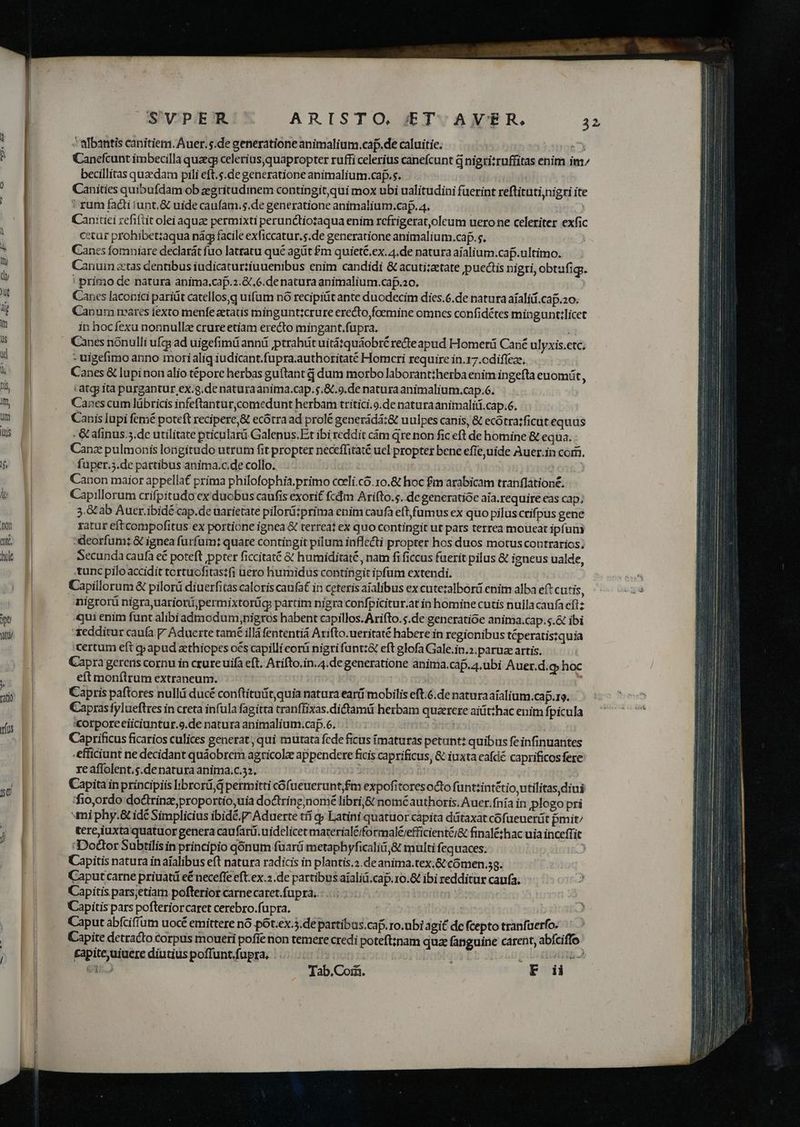 SVPER ARISTO, ET AVER. 32
albantis canitiem. Auer.5.de generatione animalium.cap̄.de caluitie.
Canescunt imbecilla quæq; celerius,quapropter ruffi celerius canescunt q̄ nigri:ruffitas enim im/
becillitas quædam pili est.5.de generatione animalium.cap̄.5.
Canities quibusdam ob ægritudinem contingit,qui mox ubi ualitudini fuerint restituti,nigri ite
rum facti sunt,& uide causam.5.de generatione animalium.cap̄.4.
Canitiei resistit olei aquæ permixti perunctio:aqua enim refrigerat,oleum uero ne celeriter exsic
cetur prohibet:aqua nāq; facile exsiccatur.5.de generatione animalium.cap̄.5.
Canes somniare declarāt suo latratu quē agūt ƥm quietē.ex.4.de natura aīalium.cap̄.ultimo.
Canum ætas dentibus iudicatur:iuuenibus enim candidi & acuti:ætate ꝓuectis nigri, obtusiq;.
primo de natura anima.cap̄.2.&.6.de natura animalium.cap̄.20.
Canes laconici pariūt catellos,q uisum nō recipiūt ante duodecim dies.6.de natura aīaliū.cap̄.20.
Canum mares sexto mense ætatis mingunt:crure erecto,fœmine omnes considētes mingunt:licet
in hoc sexu nonnullæ crure etiam erecto mingant.supra.
Canes nōnulli usq; ad uigesimū annū ꝓtrahūt uitā:quāobrē recte apud Homerū Canē ulyxis.etc.
uigesimo anno mori aliq iudicant.supra.authoritatē Homeri require in.17.odisseæ.
Canes & lupi non alio tēpore herbas gustant q̄ dum morbo laborant:herba enim ingesta euomūt,
atq; ita purgantur.ex.9.de natura anima.cap.5.&.9.de natura animalium.cap.6.
Canes cum lūbricis infestantur,comedunt herbam tritici.9.de natura animaliū.cap̄.6.
Canis lupi femē potest recipere,& ecōtra ad prolē generādā:& uulpes canis, & ecōtra:sicut equus
& asinus.3.de utilitate pticularū Galenus.Et ibi reddit cām q̄re non sic est de homine & equa.
Canæ pulmonis longitudo utrum sit propter necessitatē uel propter bene esse,uide Auer.in com̄.
super.3.de partibus anima.c.de collo.
Canon maior appellat̄ prima philosophia.primo cœli.cō.10.& hoc ƥm arabicam translationē.
Capillorum crispitudo ex duobus causis exorit̄ scđm Aristo.5. de generatiōe aīa.require eas cap.
3.& ab Auer.ibidē cap.de uarietate pilorū:prima enim causa est,fumus ex quo pilus crispus gene
ratur est compositus ex portione ignea & terrea: ex quo contingit ut pars terrea moueat ipsum
deorsum:& ignea sursum: quare contingit pilum inflecti propter hos duos motus contrarios.
Secunda causa eē potest ꝓpter siccitatē & humiditatē, nam si siccus fuerit pilus & igneus ualde,
tunc pilo accidit tortuositas:si uero humidus contingit ipsum extendi.
Capillorum & pilorū diuersitas caloris causat̄ in ceteris aīalibus ex cute:alborū enim alba est cutis,
nigrorū nigra,uariorū,permixtorūq; partim nigra conspicitur.at in homine cutis nulla causa est:
qui enim sunt alibi admodum,nigros habent capillos.Aristo.5.de generatiōe anima.cap.5.& ibi
redditur causa ꝟ Aduerte tamē illā sententiā Aristo.ueritatē habere in regionibus tēperatis:quia
certum est q apud æthiopes oēs capilli eorū nigri sunt:& est glosa Gale.in.2.paruæ artis.
Capra gerens cornu in crure uisa est. Aristo.in.4.de generatione anima.cap̄.4.ubi Auer.d.q hoc
est monstrum extraneum.
Capris pastores nullū ducē constituūt,quia natura earū mobilis est.6.de natura aīalium.cap̄.19.
Capras syluestres in creta insula sagitta transfixas.dictamū herbam quærere aiūt:hac enim spicula
corpore eiiciuntur.9.de natura animalium.cap̄.6.
Caprificus ficarios culices generat, qui mutata sede ficus imaturas petunt: quibus se insinuantes
efficiunt ne decidant quāobrem agricolæ appendere ficis caprificus, & iuxta easdē caprificos sere
re assolent.5.de natura anima.c.32.
Capita in principiis librorū,q̄ permitti cōsueuerunt,ƥm expositores octo sunt:intētio,utilitas,diui
sio,ordo doctrinæ,proportio,uia doctrinę,nomē libri,& nomē authoris.Auer.sn̄ia in ꝓlogo pri
mi phy.& idē Simplicius ibidē.ꝟ Aduerte tn̄ q Latini quatuor capita dūtaxat cōsueuerūt p̄mit/
tere,iuxta quatuor genera causarū.uidelicet materialē:formalē:efficientē:& finalē:hac uia incessit
Doctor Subtilis in principio qōnum suarū metaphysicaliū,& multi sequaces.
Capitis natura in aīalibus est natura radicis in plantis.2.de anima.tex.& cōmen.38.
Caput carne priuatū eē necesse est.ex.2.de partibus aīaliū.cap̄.10.& ibi redditur causa.
Capitis pars,etiam posterior carne caret.supra.
Capitis pars posterior caret cerebro.supra.
Caput abscissum uocē emittere nō pōt.ex.3.de partibus.cap̄.10.ubi agit̄ de scepto transuerso.
Capite detracto corpus moueri posse non temere credi potest:nam quæ sanguine carent, abscisso
capite,uiuere diutius possunt.supra.
Tab.Com̄. F ii